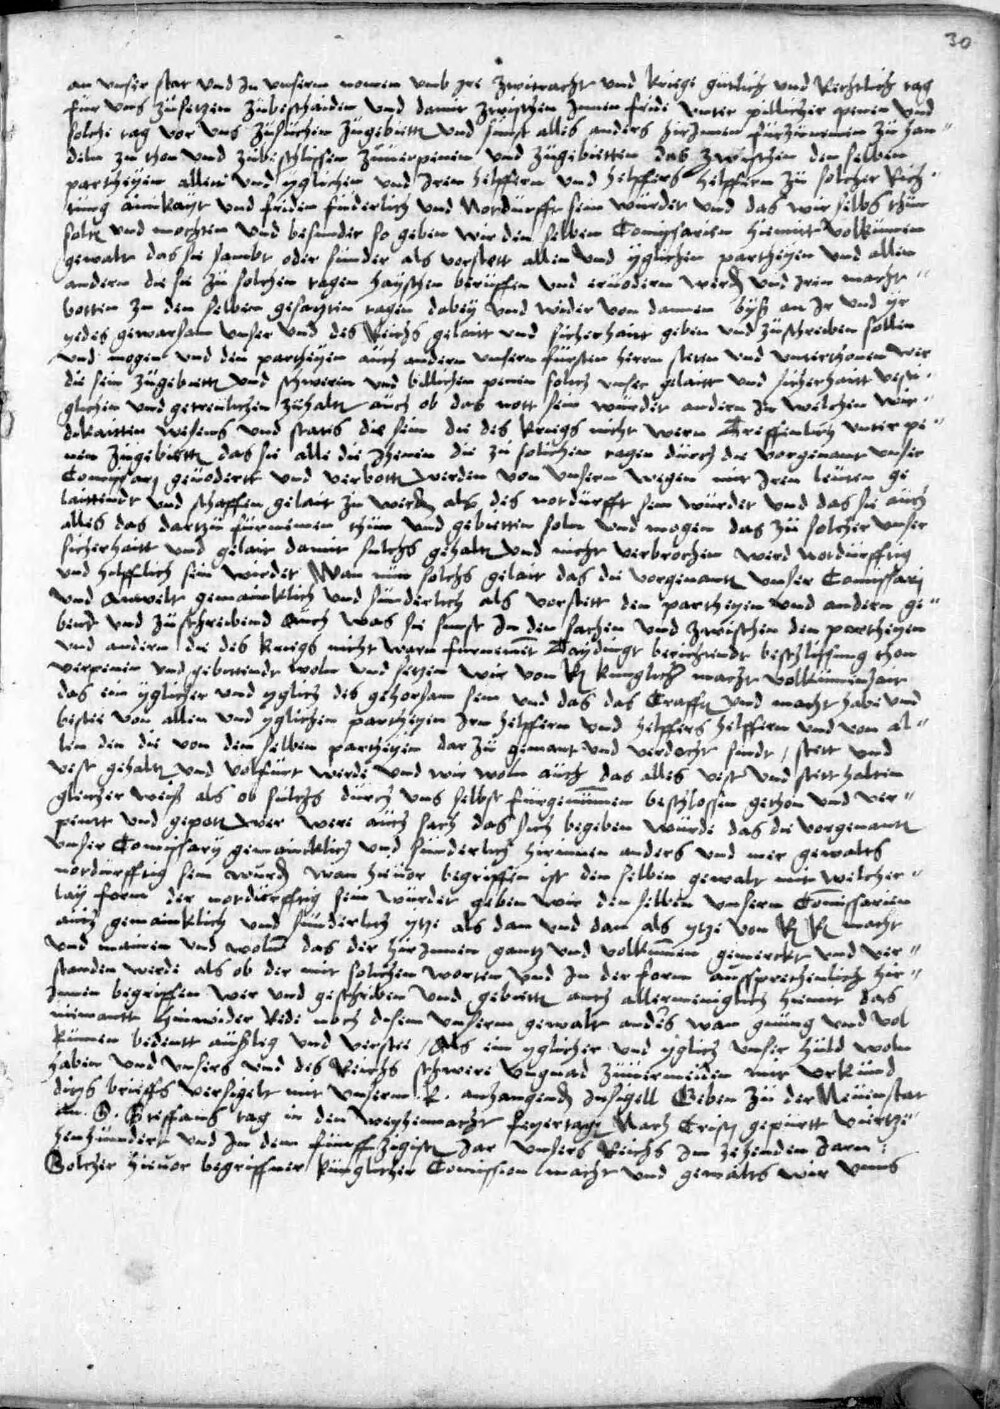 30
an unser stat und Jn unserm namen umb ire zwitracht und kriege gütlich und Rechtlich tag
für uns zusetzen zubeschaiden und damit zwischen Jnnen fride unter pillicher penen und
solche tag vor uns zusuchen zugebietn und sunst alles anders hirJnnen furzunemen zu han-
deln zu thon und zubeschlissen zuverpenen und zugebietten das zwischen den selben
partheyen allen und yglichen und Jren helffern und helffers helffern zu solcher Rich-
tung ainikayt und friden furderlich und Notdurfft sein wurdet und das wir selbs thun
soltn und mochten und besunder so geben wir den selben Comissarien hiemit volkumen
gewalt das sie sambt oder sunder als vorstett allen und yglichen partheyen und allen
andern die sie zu solchen tagen hayschen beruffen und ervodern werdn und Jren macht-
botten zu den selben gesatzten tagen dabey und wider von dannen byß an Jr und yr
yedes gewarsam unser und des Reichs gelait und sicherhait geben und zuschreiben sollen
und mogen und den partheyen auch andern unsern fursten herrn steten und unterthonen wer
die sein zugebietn und schweren und billichen penen solch unser gelaitt und sicherhaitt vesti-
glichen und getreulichen zuhaltn auch ob das nott sein wurdet andern Jn welchen wir-
dikaitten wesens und stats die sein die des kriegs nicht wern Treffenlich unter pe-
nen zugebietn das sie alle die Jhenen die zu solichen tagen durch die vorgenant unser
Comissarj gevodertt und verbott werden von unsern wegen mit Jren leuten ge
laittendt und schaffen gelait zu werdn als des notdurfft sein wurdet und das sie auch
alles das dartzu furnemen thun und gebietten soln und mogen das zu solcher unser
sicherhaitt und gelait damit sulchs gehaltn und nicht verbrochen werd notdurfftig
und helfflich sein wirdet Wan nun solchs gelait das die vorgenantn unser Comissarj
und Anwelt gemainklich und sunderlich als vorstett den partheyen und andern ge-
bend und zuschreibend Auch was sie sunst Jn den sachen und zwischen den partheyen
und andern die des kriegs nicht warn furnement Taydingt berichtendt beschlissung thon
verpenen und gebietendt woln und setzen wir von R kunglicher macht volkumenhait
das ein yglicher und yglich des gehorsam sein und das das Crafft und macht habe und
bestee von allen und yglichen partheyen Jrn helffern und helffers helffern und von al-
len den die von den selben partheyen dar zu gemant und verdocht sindt / stett und
vest gehaltn und volfurt werde und wir woln auch das alles vest und stett halten
glicher weiß als ob sulchs durch uns selbst furgenumen beschlossen gethon und ver-
pentt und gepotn wer were auch sach das sich begeben wurde das die vorgenantn
unser Comissary gemainklich und sunderlich hirinnen anders und mer gewalts
notdurfftig sein wurdn wan hievor begriffen ist den selben gewalt mit welcher-
lay form der notdurfftig sein wurdet geben wir den selben unsern Comissarien
auch gemainklich und sunderlich ytzo als dan und dan als ytze von R K macht
und mainen und wolln das der hirJnnen gantz und volkumen gemerckt und ver-
standen werde als ob der mit solchen worten und Jn der form aussprechenlich hir-
Jnnen begriffen wer und geschriben und gebietn auch allermeniglich hiemit das
niemantt hirwider Rede noch disem unserm gewalt anders wan gnung und vol
kumen bedeutt ausleg und verstee / Als ein yglicher und yglich unser huld woln
haben und unsers und des Reichs schwere ungnad zuvermeiden mit urkund
ditzs brieffs versigelt mit unserm . K . anhangendn Jnsigell Geben zu der Neuenstat
an . S . Steffans tag in den weyhenacht feyertagn Nach Cristj gepurtt viertze-
henhundert und Jn dem funffzigistn Jar unsers Reichs Jm zehenden Jarn :
Solcher hievor begriffner kunglicher Comission macht und gewalts wir unns